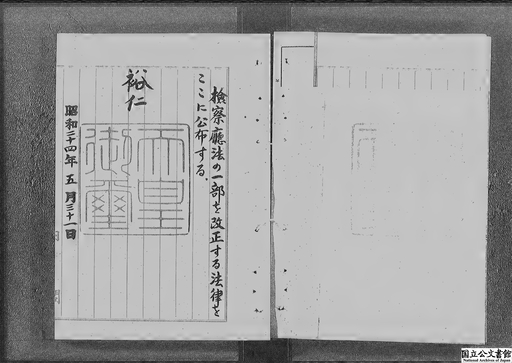 檢察廳法の一部を改正する法律を
ここに公布する。
裕仁
天皇
御璽
昭和二十四年五月三十一日
国立公文書館
National Archives of Japan